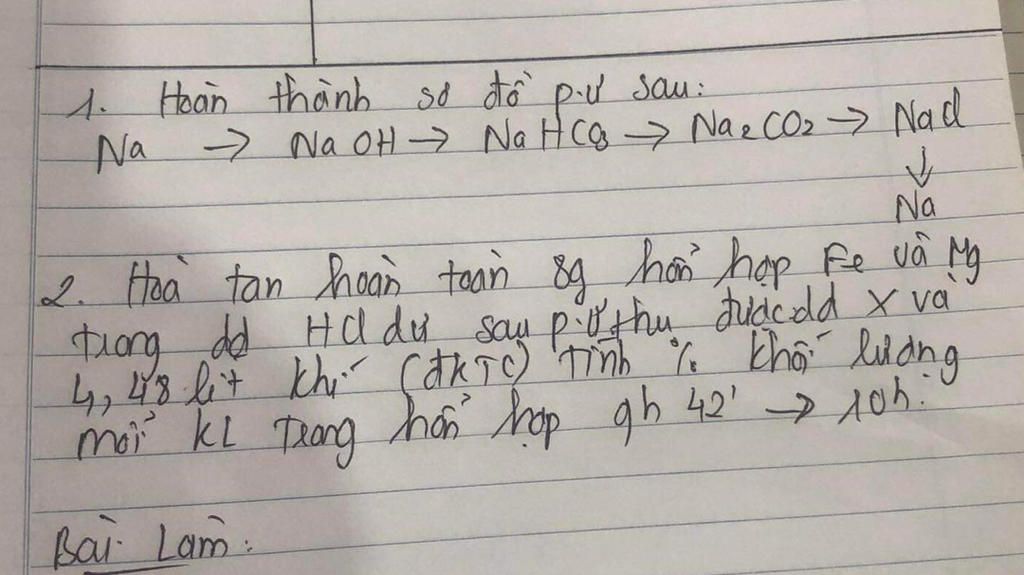 1. Hoàn thành sơ đồ p.ư sau:
Na → NaOH → NaHCO3 → Na2CO2 → NaCl
↓
Na
2. Hoà tan hoàn toàn 8g hỗn hợp Fe và Mg
trong dd HCl dư sau p.ư thu được dd X và
4,48 lít khí (đktc) Tính % khối lượng
mỗi kL trong hỗn hợp 9h 42' → 10h.
Bài Làm: